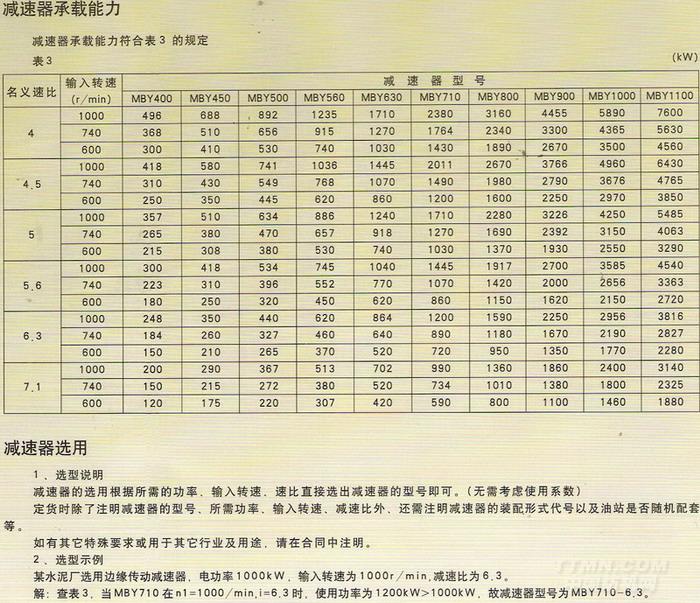 减速器承载能力
减速器承载能力符合表3 的规定
表3 (kW)
名义速比 输入转速 (r/min) 减速器型号
MBY400 MBY450 MBY500 MBY560 MBY630 MBY710 MBY800 MBY900 MBY1000 MBY1100
4 1000 496 688 892 1235 1710 2380 3160 4455 5890 7600
740 368 510 656 915 1270 1764 2340 3300 4365 5630
600 300 410 530 740 1030 1430 1890 2670 3500 4560
4.5 1000 418 580 741 1036 1445 2011 2670 3766 4960 6430
740 310 430 549 768 1070 1490 1980 2790 3676 4765
600 250 350 445 620 860 1200 1600 2250 2970 3850
5 1000 357 510 634 886 1240 1710 2280 3226 4250 5485
740 265 380 470 657 918 1270 1690 2392 3150 4063
600 215 308 380 530 740 1030 1370 1930 2550 3290
5.6 1000 300 418 534 745 1040 1445 1917 2700 3585 4540
740 223 310 396 552 770 1070 1420 2000 2656 3363
600 180 250 320 450 620 860 1150 1620 2150 2720
6.3 1000 248 350 440 620 864 1200 1590 2250 2956 3816
740 184 260 327 460 640 890 1180 1670 2190 2827
600 150 210 265 370 520 720 950 1350 1770 2280
7.1 1000 200 290 367 513 702 990 1360 1860 2400 3140
740 150 215 272 380 520 734 1010 1380 1800 2325
600 120 175 220 307 420 590 800 1100 1460 1880
减速器选用
1、选型说明
减速器的选用根据所需的功率、输入转速、速比直接选出减速器的型号即可。(无需考虑使用系数)
定货时除了注明减速器的型号、所需功率、输入转速、减速比外、还需注明减速器的装配形式代号以及油站是否随机配套
等。
如有其它特殊要求或用于其它行业及用途，请在合同中注明。
2、选型示例
某水泥厂选用边缘传动减速器，电功率1000kW，输入转速为1000r/min,减速比为6.3。
解：查表3，当MBY710在n1=1000/min,i=6.3时，使用功率为1200kW>1000kW，故减速器型号为MBY710-6.3。
TTMN.COM